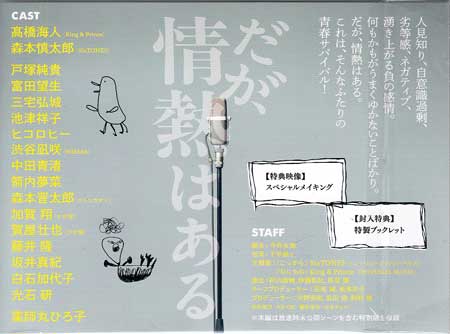 CAST
髙橋海人 (King & Prince)
森本慎太郎 (SixTONES)
戸塚純貴
富田望生
三宅弘城
池津祥子
ヒコロヒー
渋谷凪咲 (NMB48)
中田青渚
箭内夢菜
森本晋太郎
加賀 翔
賀屋壮也
藤井 隆
坂井真紀
白石加代子
光石 研
薬師丸ひろ子
だが、
情熱はある
人見知り、自意識過剰、
劣等感、ネガティブ、
湧き上がる負の感情。
何もかもがうまくゆかないことばかり。
だが、情熱はある。
これは、そんなふたりの
青春サバイバル！
【特典映像】
スペシャルメイキング
【封入特典】
特製ブックレット
STAFF
※本編は放送時未公開シーンを含む特別版を収録